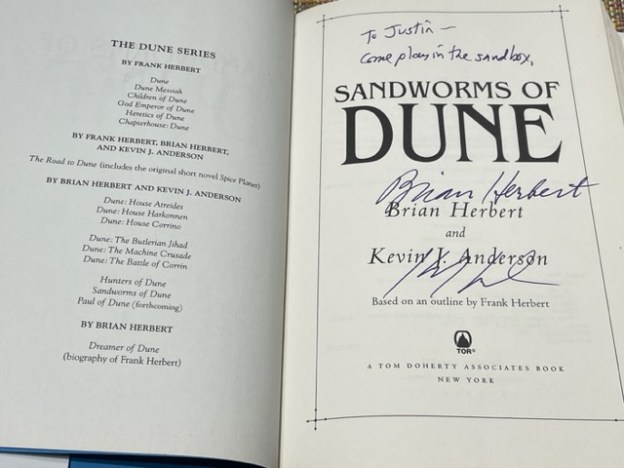 THE DUNE SERIES
BY FRANK HERBERT
Dune
Dune Messiah
Children of Dune
God Emperor of Dune
Heretics of Dune
Chapterhouse: Dune
BY FRANK HERBERT, BRIAN HERBERT,
AND KEVIN J. ANDERSON
The Road to Dune (includes the original short novel Spice Planet)
BY BRIAN HERBERT AND KEVIN J. ANDERSON
Dune: House Atreides
Dune: House Harkonnen
Dune: House Corrino
Dune: The Butlerian Jihad
Dune: The Machine Crusade
Dune: The Battle of Corrin
Hunters of Dune
Sandworms of Dune
Paul of Dune (forthcoming)
BY BRIAN HERBERT
Dreamer of Dune
(biography of Frank Herbert)
To Justin –
Come play in the sandbox,
SANDWORMS OF
DUNE
Brian Herbert
Brian Herbert
and
Kevin J. Anderson
Based on an outline by Frank Herbert
TOR®
A TOM DOHERTY ASSOCIATES BOOK
NEW YORK